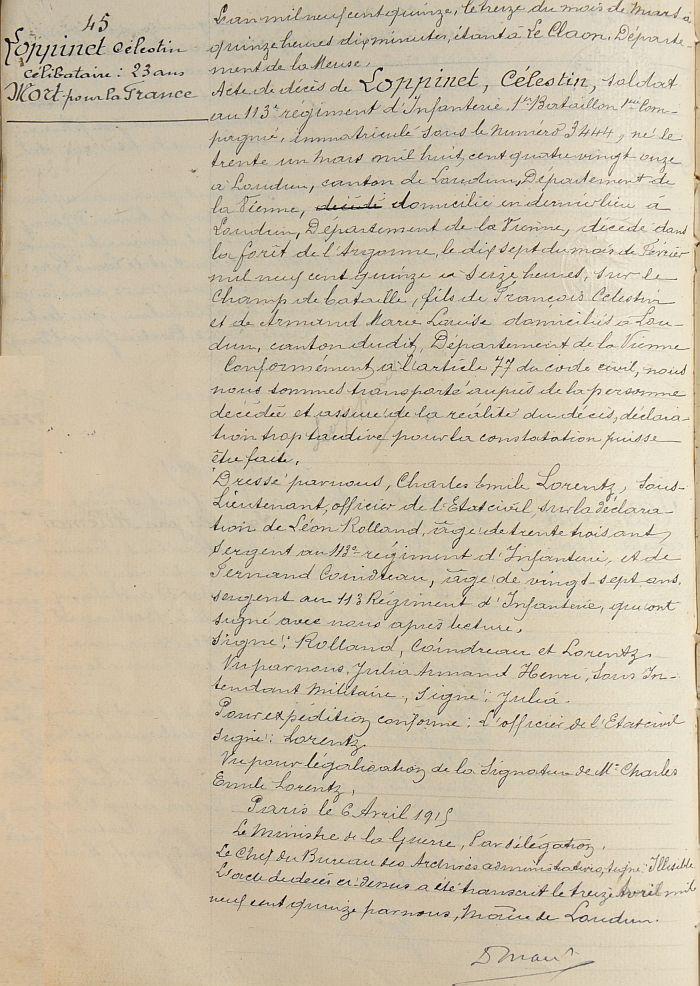 45
Loppinet Célestin
célibataire : 23 ans
Mort pour la France
L'an mil neuf cent quinze, le treize du mois de Mars à
quinze heures dix minutes, étant à Le Claon, Départe-
ment de la Meuse.
Acte de décès de Loppinet, Célestin, soldat
au 113e régiment d'Infanterie, 1er Bataillon 1ère Com-
pagnie, immatriculé sous le numéro 3444, né le
trente un mars mil huit cent quatre vingt onze
à Loudun, canton de Loudun, Département de
la Vienne, décédé domicilié en dernier lieu à
Loudun, Département de la Vienne, décédé dans
la forêt de l'Argonne, le dix sept du mois de Février
mil neuf cent quinze à seize heures, sur le
Champ de bataille, fils de François Célestin
et de Armand Marie Louise domiciliés à Lou-
dun, canton dudit, Département de la Vienne
Conformément à l'article 77 du code civil, nous
nous sommes transporté auprès de la personne
décédée et assuré de la réalité du décès, déclara-
tion trop tardive pour la constatation puisse
être faite.
Dressé par nous, Charles Emile Lorentz, Sous-
Lieutenant, officier de l'Etat civil sur la déclara-
tion de Léon Rolland, âgé de trente trois ans,
Sergent au 113e régiment d'Infanterie, et de
Fernand Coindreau, âgé de vingt-sept ans.
sergent au 113 Régiment d'Infanterie, qui ont
signé avec nous après lecture.
Signé : Rolland, Coindreau et Lorentz
Vu par nous, Julia Armand Henri, Sous In-
tendant Militaire, Signé : Julia.
Pour expédition conforme : L'officier de l'Etat civil
signé : Lorentz
Vu pour légalisation de la Signature de Mr Charles
Emile Lorentz,
Paris le 6 Avril 1915
Le Ministre de la Guerre, Par délégation,
Le Chef du Bureau des Archives administratives, signé : Illisible
L'acte de décès ci-dessus a été transcrit le treize Avril mil
neuf cent quinze par nous, Maire de Loudun.